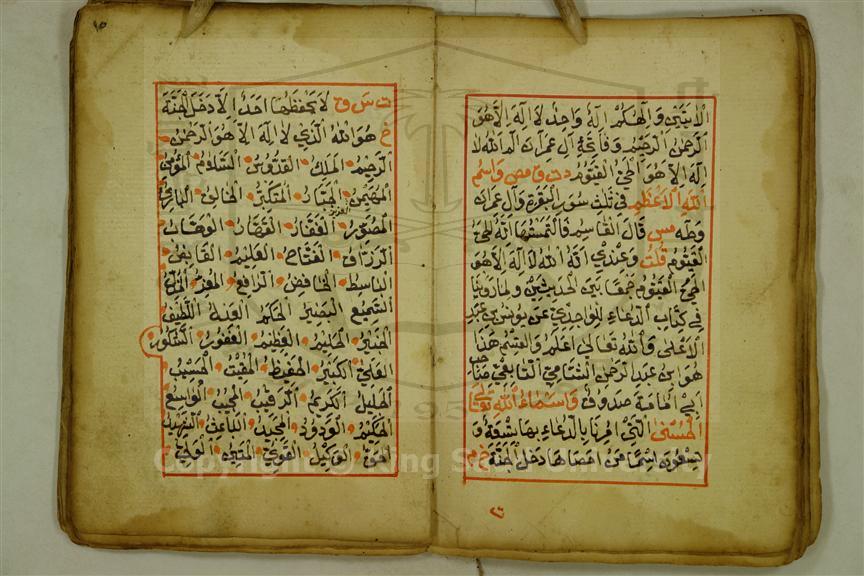 الايتين والهكم اله واحد لا اله الا هو
الرحمن الرحيم وفاتحة آل عمران الم الله لا
اله الا هو الحي القيوم د ت ق مص واسم
الله الاعظم في ثلث سور البقرة وآل عمران
وطه مس قال القاسم فالتمستها انه الحي
القيوم قلت وعندي انه الله لا اله الا هو
الحي القيوم جمعا بين الحديثين ولما روينا
في كتاب الدعاء للواحدي عن يونس بن عبد
الاعلى والله تعالى اعلم والقسم هذا
هو ابن عبد الرحمن الشامي التابعي صاحب
ابي امامة صدوق واسماء الله تعالى
الحسنى التي امرنا بالدعاء بها تسعة و
تسعون اسما من احصاها دخل الجنة خ م
ت س ق لا يحفظها احد الا دخل الجنة
خ هو الله الذي لا اله الا هو الرحمن
الرحيم الملك القدوس السلام المؤمن
المهيمن العزيز الجبار المتكبر الخالق البارئ
المصور الغفار القهار الوهاب
الرزاق الفتاح العليم القابض
الباسط الخافض الرافع المعز المذل
السميع البصير الحكم العدل اللطيف
الخبير الحليم العظيم الغفور الشكور
العلي الكبير الحفيظ المقيت الحسيب
الجليل الكريم الرقيب المجيب الواسع
الحكيم الودود المجيد الباعث الشهيد
الحق الوكيل القوي المتين الولي
١٥
Copyright © King Saud University